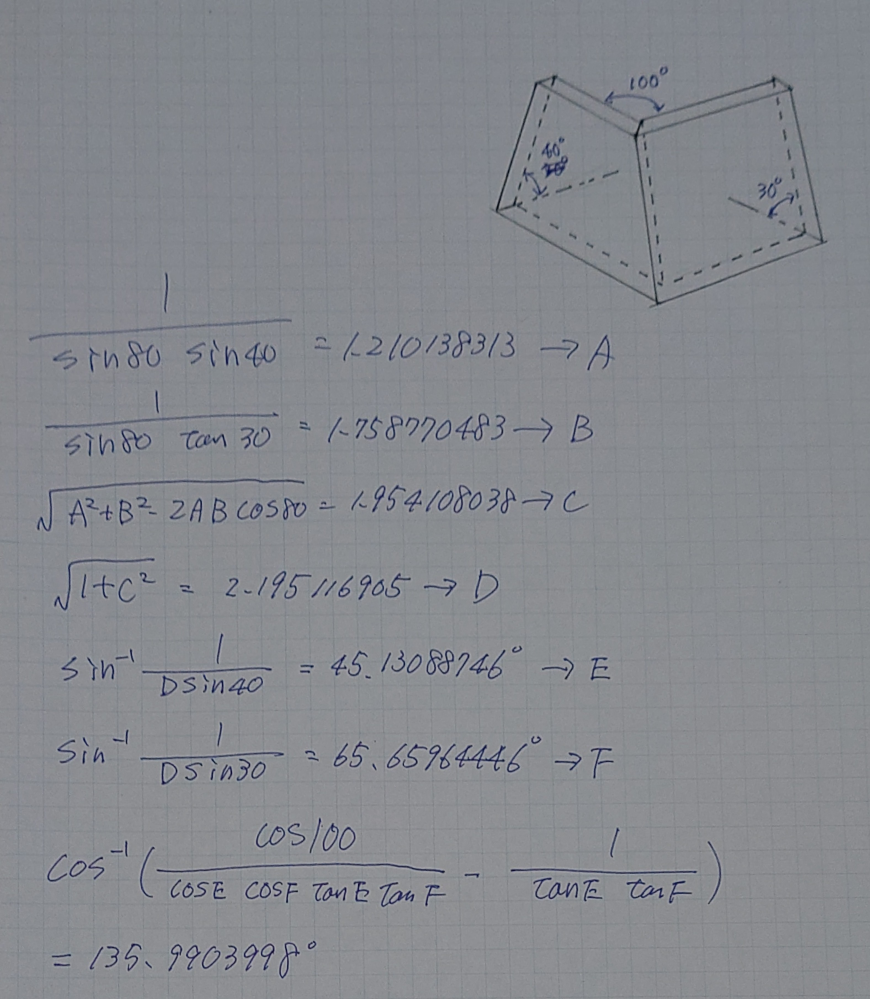 100°
40°
30°
1 / (sin80 sin40) = 1.210138313 → A
1 / (sin80 tan 30) = 1.758770483 → B
√(A²+B²-2ABcos80) = 1.954108038 → C
√(1+C²) = 2.195116905 → D
sin⁻¹ 1 / (Dsin40) = 45.13088746° → E
sin⁻¹ 1 / (Dsin30) = 65.65964446° → F
cos⁻¹ ( cos100 / (cosE cosF tanE tanF) - 1 / (tanE tanF) )
= 135.9903998°